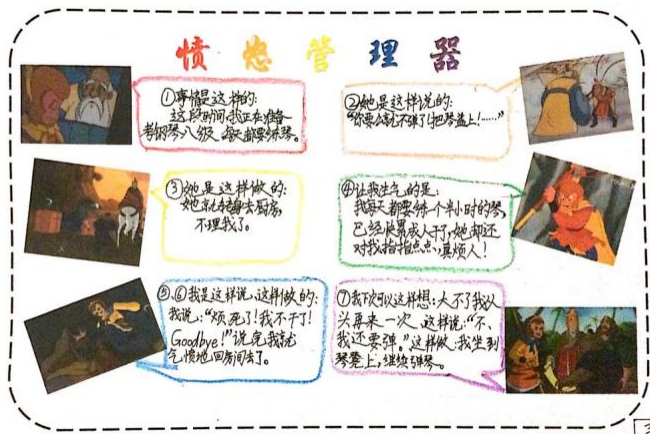 愤怒管理器
①事情是这样的:
这段时间,我正在准备
考钢琴八级,每天都要练琴。
②她是这样说的:
“你要么就不弹了!把琴盖上!……”
③她是这样做的:
她就转身去厨房,
不理我了。
④让我生气的是:
我每天都要练一个半小时的琴,
已经快累成人干了,她却还
对我指指点点,真烦人!
⑤、⑥我是这样说、这样做的:
我说:“烦死了!我不干了!
Goodbye!”说完我就
气愤地回房间去了。
⑦我下次可以这样想:大不了我从
头再来一次,这样说:“不、
我还要弹。”这样做:我坐到
琴凳上,继续弹琴。